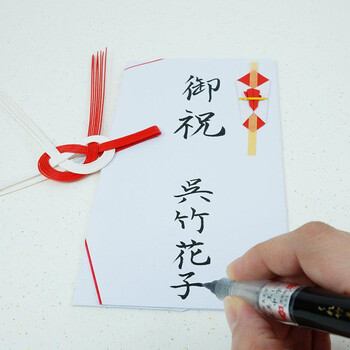 御祝
呉竹花子